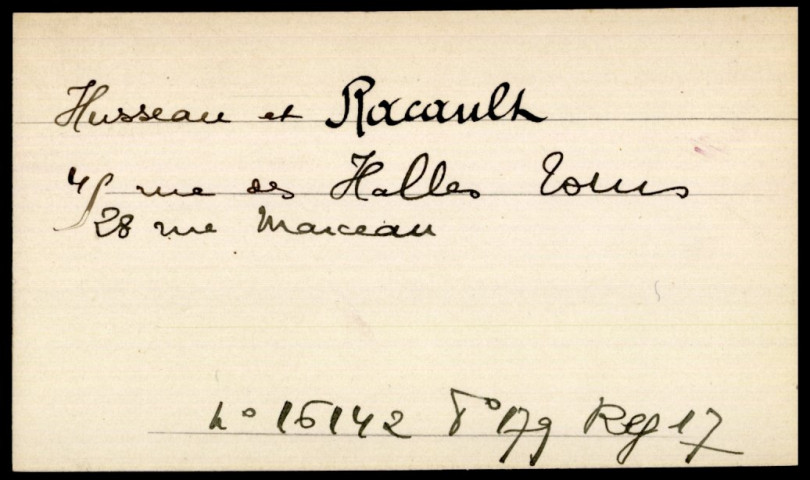 Husseau et Racault
45 rue des Halles Tours
28 rue Marceau
No 15142 Fo 179 Reg 17